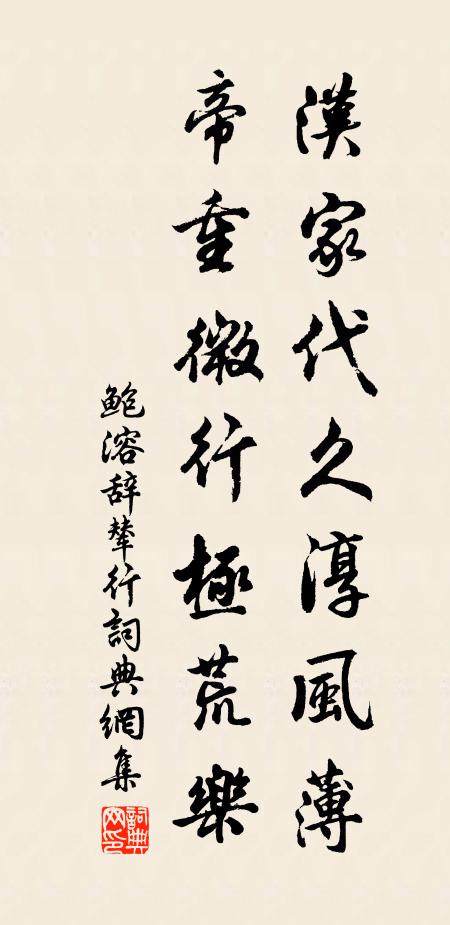 漢家代久淳風薄
帝重微行極荒樂
鮑溶辞輦行詞典網集
詞典網印